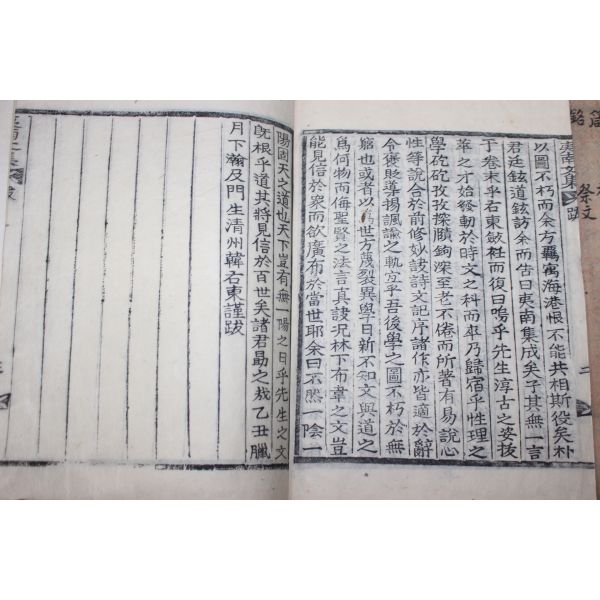 東南文集 跋
以圖不朽而余方羈寓海港恨不能共相斯役矣朴
君廷鉉道鉉訪余而告曰東南集成矣子其無一言
于卷末乎右東斂衽而復曰嗚乎先生淳古之姿拔
萃之才始發動於時文之科而卒乃歸宿乎性理之
學矻矻孜孜探賾鉤深至老不倦而所著有易說心
性等說合於前修妙諦詩文記序諸作亦皆適於辭
令褒貶導揚諷諭之軌宜乎吾後學之圖不朽於無
窮也或者以爲世方蔑裂異學日新不知文與道之
爲何物而侮聖賢之法言眞諦况林下布韋之文豈
能見信於衆而欲廣布於當世耶余曰不然一陰一
陽固天之道也天下豈有無一陽之日乎先生之文
旣根乎道其將見信於百世矣諸君勗之哉乙丑臘
月下瀚及門生清州韓右東謹跋
二
祭文